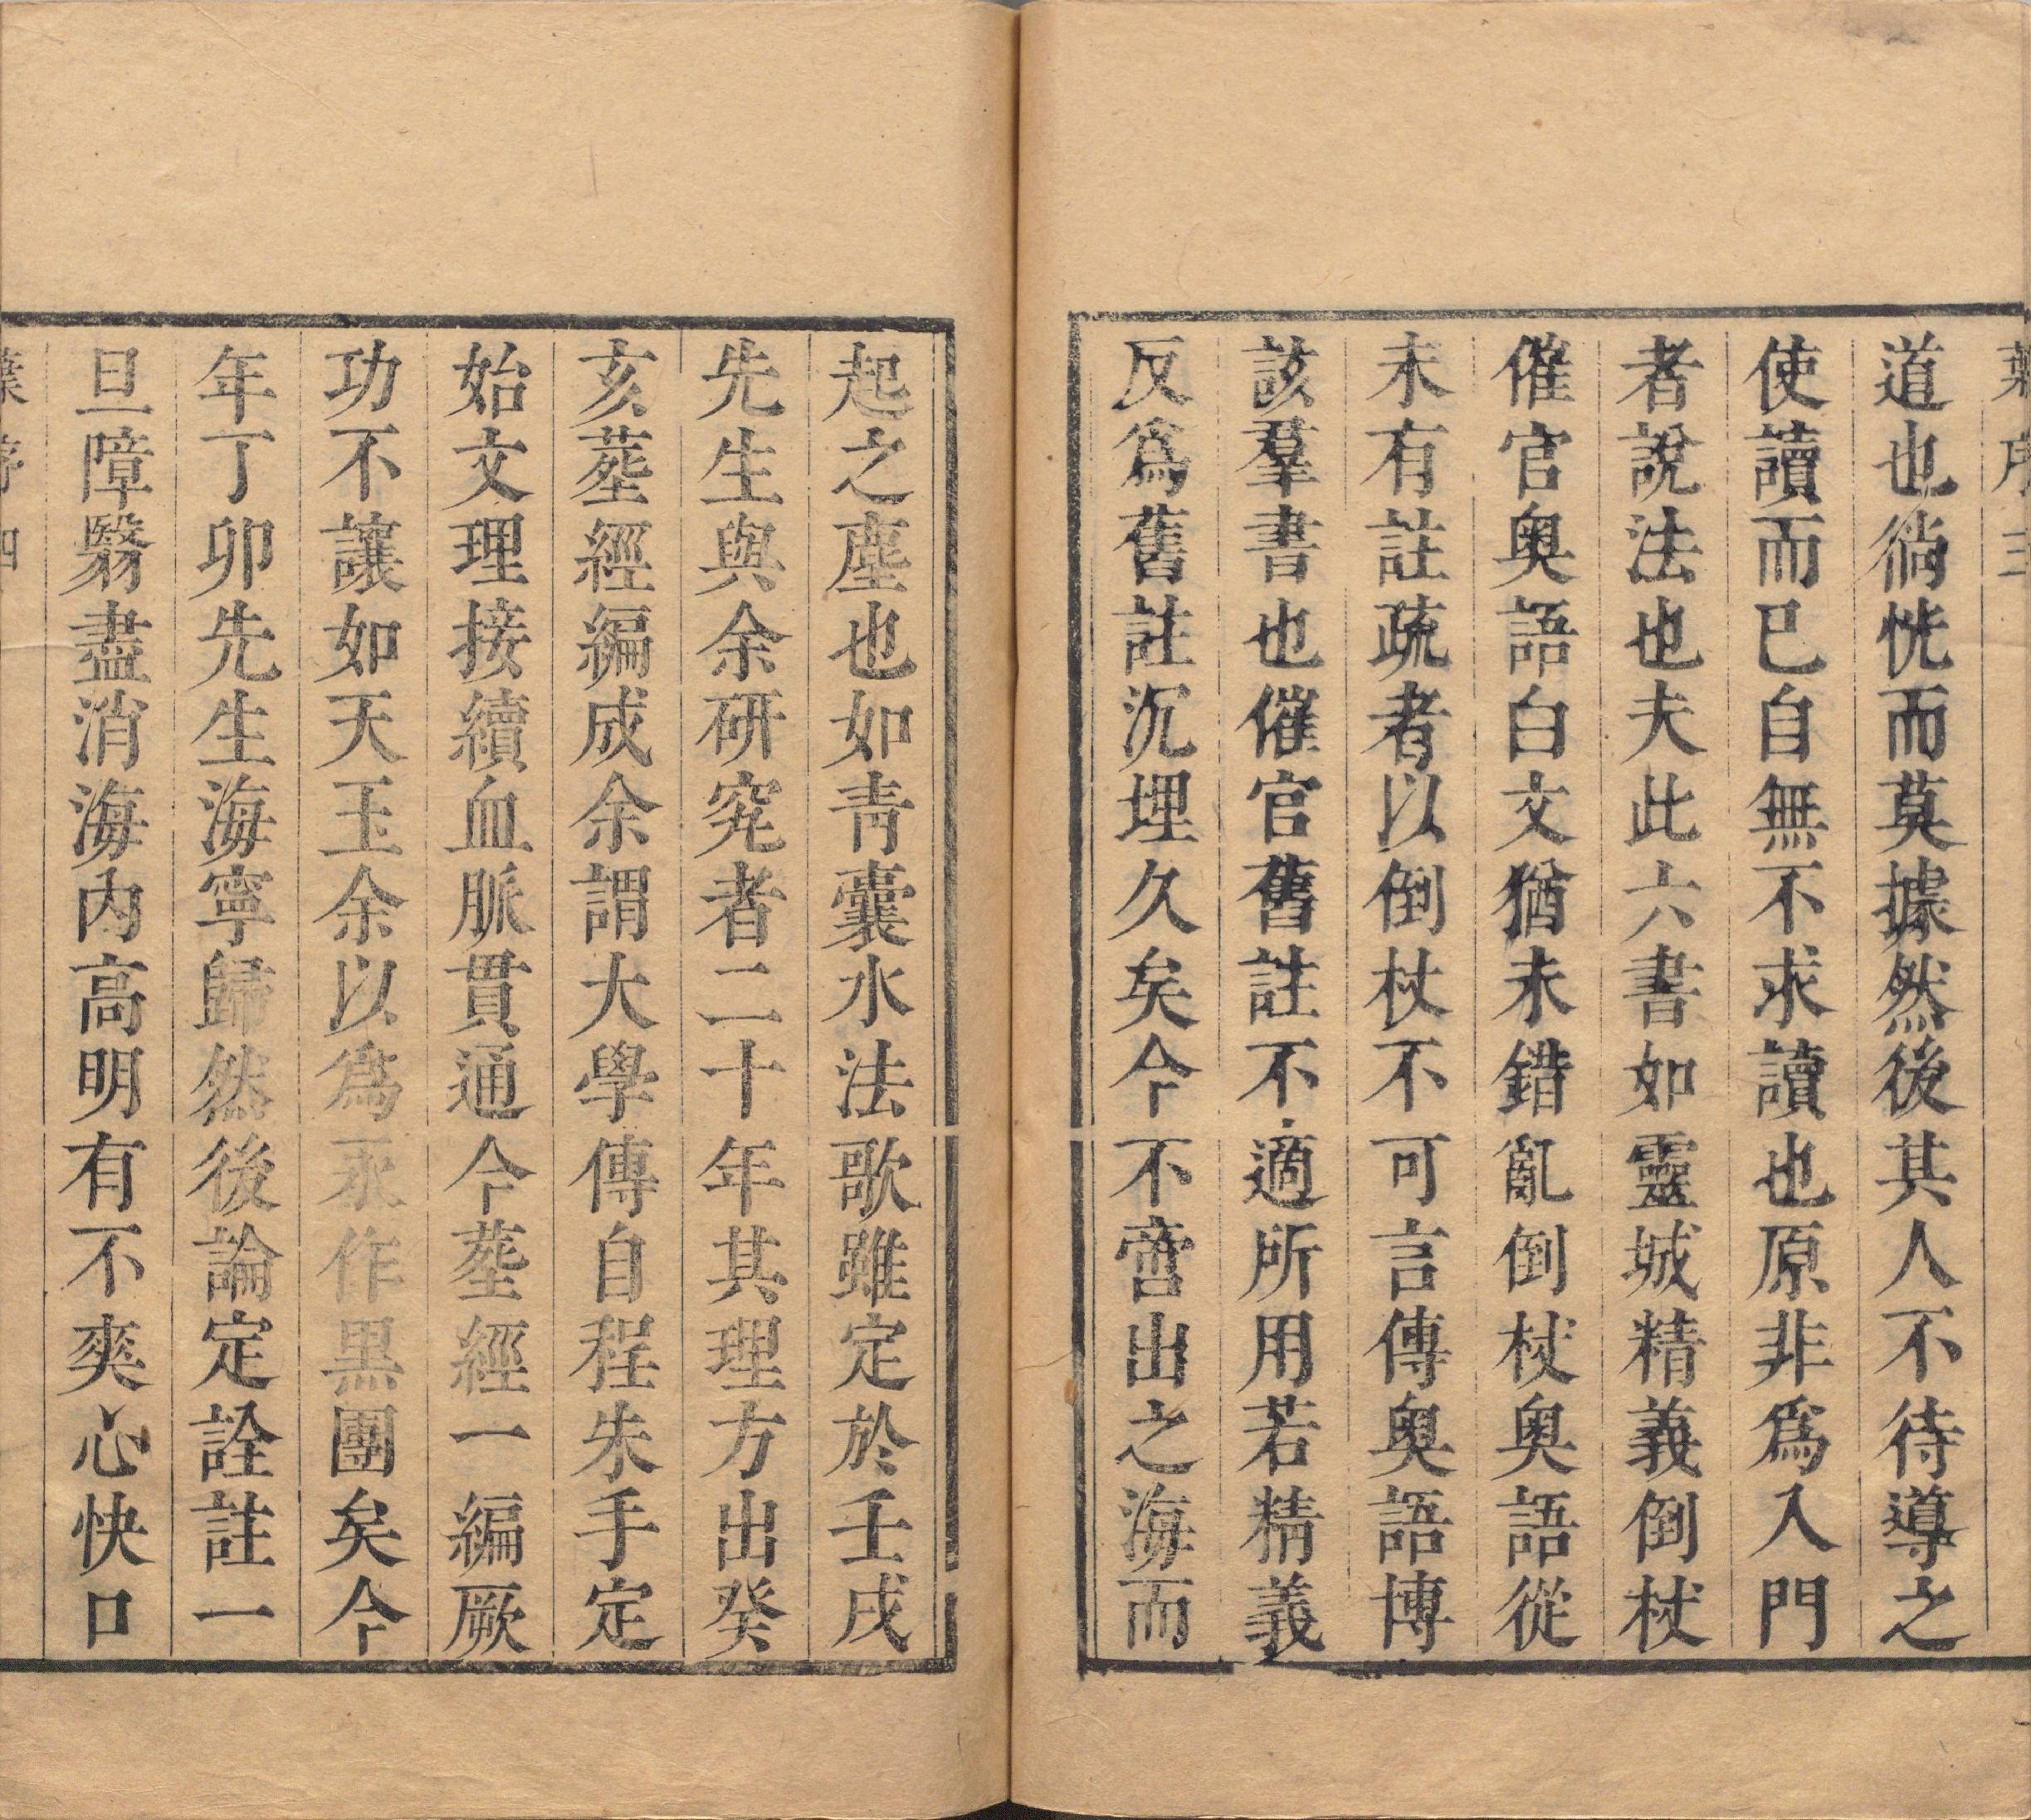 葉序 三
道也徜恍而莫據然後其人不待導之
使讀而已自無不求讀也原非爲入門
者說法也夫此六書如靈城精義倒杖
催官奥語白文猶未錯亂倒杖奥語從
未有註疏者以倒杖不可言傳奥語博
該羣書也催官舊註不適所用若精義
反爲舊註沉埋久矣今不啻出之海而
起之塵也如青囊水法歌雖定於壬戌
先生與余研究者二十年其理方出癸
亥葬經編成余謂大學傳自程朱手定
始文理接續血脈貫通今葬經一編厥
功不讓如天玉余以爲永作黑團矣今
年丁卯先生海寧歸然後論定詮註一
旦障翳盡消海内高明有不爽心快口
葉序 四